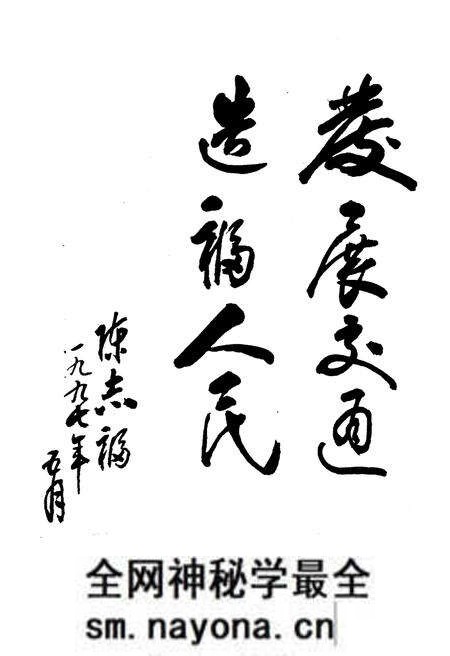 發展交通
造福人民
陈志福
一九九七年
五月
全网神秘学最全
sm.nayona.cn